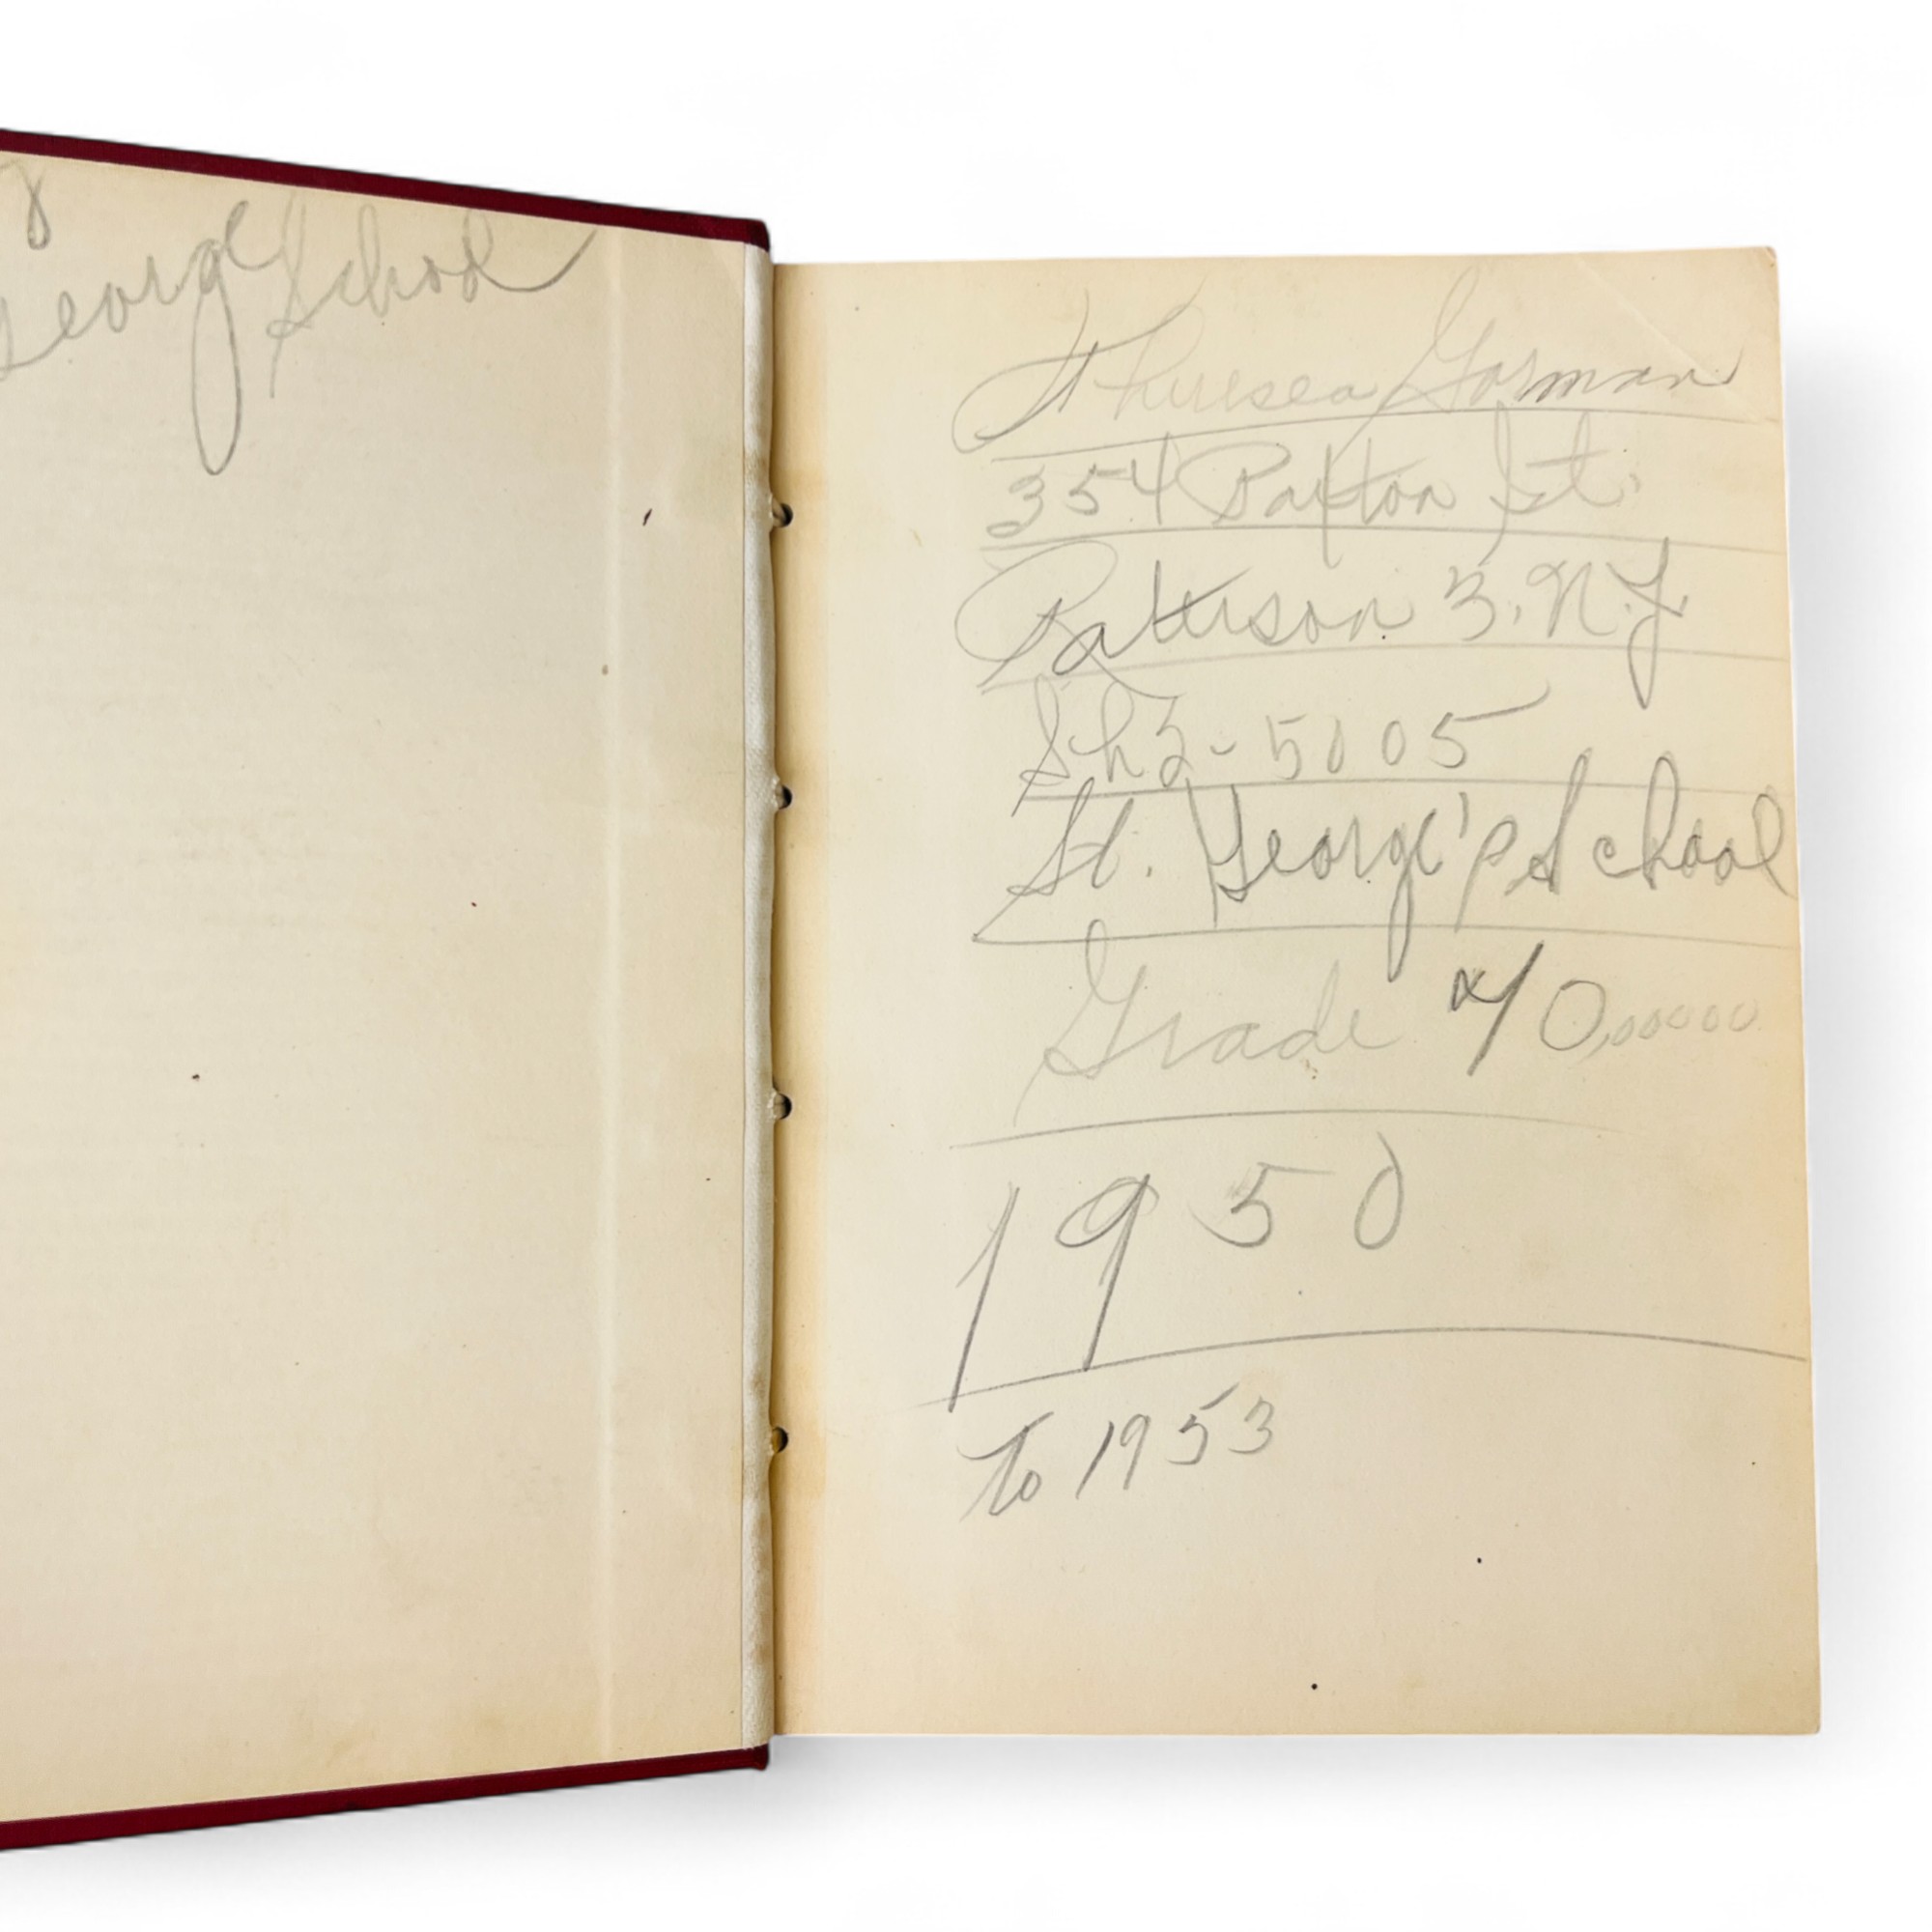 George School
Theresa Gorman
354 Paxton St.
Paterson 3. N.J.
Sh2-5005
St. George's School
Grade 10,00000
1950
To 1953